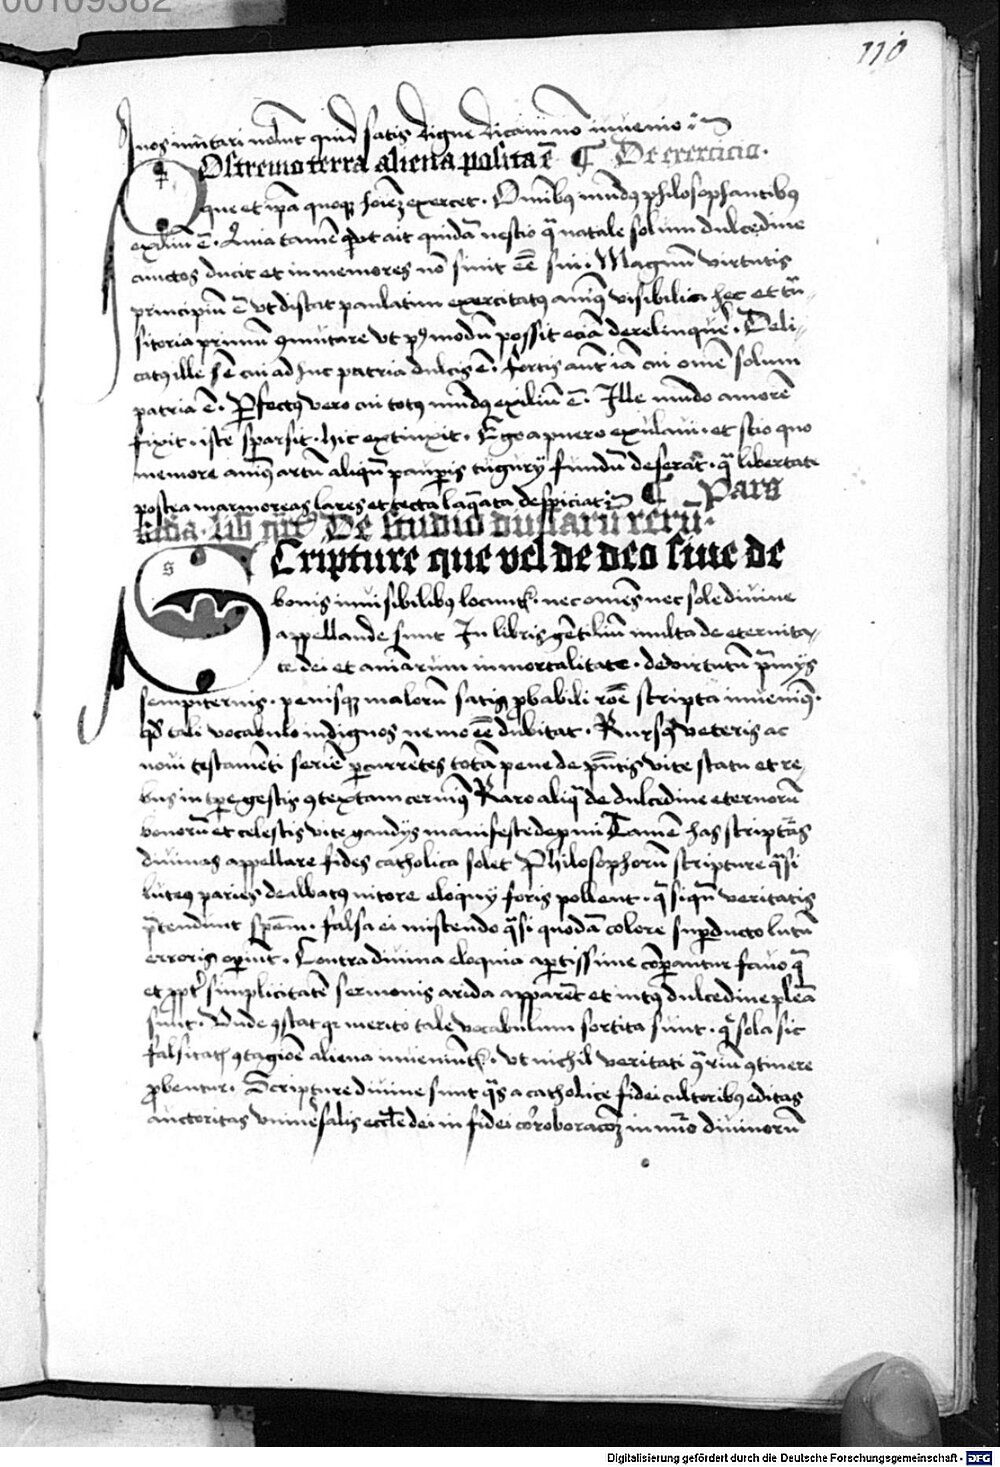 00109382
110
quos imitari nolunt quid satis digne dicam nō inuenio
Ostremo terra aliena posita ē ¶ De exercicio.
que et ip̄a quoqꝫ hoīeꝫ exercet. Omnibꝰ mūdꝰ philosophantibꝰ
exiliū ē. Quia tamē ꝓut ait quidā nescio q̄ natale solum dulcedine
cunctos ducit et inmemores nō sinit eē sui. Magnū virtutis
principiū ē vt discat paulatim exercitatꝰ animꝰ visibilia hec et trā-
sitoria primū ꝯmutare vt pꝰmodū possit eciā derelinquere. Deli-
catꝰ ille ē cui adhuc patria dulcis ē. fortis aut̄ iā cui omē solum
patria ē. Perfectꝰ vero cui totꝰ mūdꝰ exiliū ē. Ille mūdo amorē
fixit. iste sparsit. hic extinxit. Ego a puero exulaui. et scio quo
memore animꝰ artū aliqn̄ pauperis tugurij fundū deserat. q̄ libertate
postea marmoreas lares et tecta laqueata despiciat. ¶ Pars
De studio diuinarū rerū.
S
Cripture que vel de deo siue de
bonis inuisibilibꝰ locunt᷑. nec omēs nec sole diuine
appellande sunt In libris gētiliū multa de eternita-
te dei et animarum inmortalitate. de virtutū premijs
sempiternis. penisqꝫ malorū satis ꝓbabili rōe scripta inuenimꝰ.
qd̄ tali vocabulo indignos nemo eē dubitat. Rursꝰ veteris ac
noui testamēti seriē ꝑcurrētes totā pene de pn̄tis vite statu et re-
bus in tpe gestis ꝯtextam cernimꝰ Raro aliq̄ de dulcedine eternorū
bonorū et celestis vite gaudijs manifeste depmi Tamē has scripturas
diuinas appellare fides catholica solet Philosophorū scripture q̄si
luteus paries dealbatꝰ nitore eloquij foris pollent. q̄ si qn̄ veritatis
p̄tendunt spēm. falsa ei miscendo q̄si quodā colore superducto lutū
erroris operiūt. Contra diuina eloquia aptissime cōparantur fauo q̄
et ꝓpter simplicitatē sermonis arida apparēt et intꝰ dulcedine plena
sunt. Unde ꝯstat q merito tale vocabulum sortita sunt. q̄ sola sic
falsitatis ꝯtagiōe aliena inueniūt᷑. vt nichil veritati ꝯtrariū ꝯtinere
ꝓbentur. Scripture diuine sunt q̄s a catholice fidei cultoribꝰ editas
auctoritas vniuersalis ecctie dei in fidei corroboracōeꝫ in nūo diuinorū
Digitalisierung gefördert durch die Deutsche Forschungsgemeinschaft - DFG